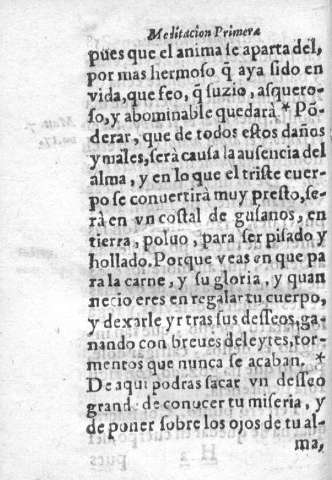 Meditacion Primera
pues que el anima se aparta del,
por mas hermoso q̃ aya sido en
vida, que feo, q̃ suzio, asquero-
so, y abominable quedarà * Põ-
derar, que de todos estos daños
y males, serà causa la ausencia del
alma, y en lo que el triste cuer-
po se conuertirà muy presto, se-
rà en vn costal de gusanos, en
tierra, poluo, para ser pisado y
hollado. Porque veas en que pa
ra la carne, y su gloria, y quan
necio eres en regalar tu cuerpo,
y dexarle yr tras sus desseos, ga-
nando con breues deleytes, tor-
mentos que nunca se acaban. *
De aqui podras sacar vn desseo
grande de conocer tu miseria, y
de poner sobre los ojos de tu al-
ma,